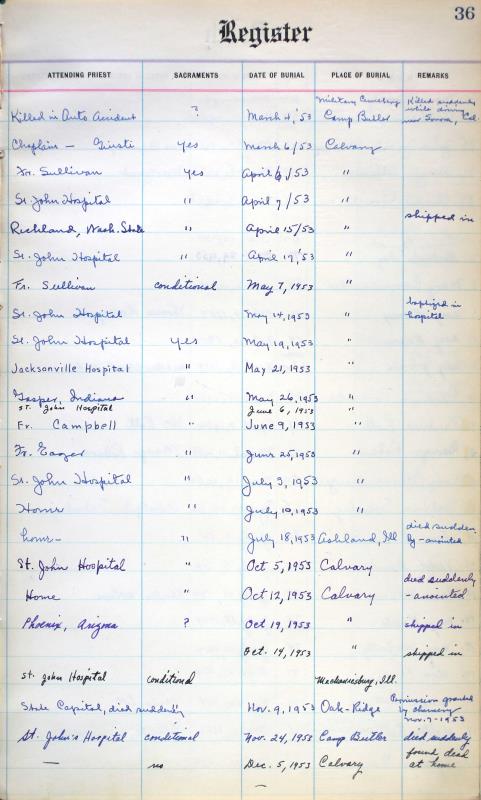 36
Register
ATTENDING PRIEST SACRAMENTS DATE OF BURIAL PLACE OF BURIAL REMARKS
Killed in Auto Accident ? March 4, '53 Military Cemetery Camp Butler Killed suddenly while driving near Sonora, Cal.
Chaplain – Giusti yes March 6/53 Calvary
Fr. Sullivan yes April 6/53 "
St. John Hospital " April 7/53 "
Richland, Wash. State " April 15/53 " shipped in
St. John Hospital " April 17, '53 "
Fr. Sullivan conditional May 7, 1953 "
St. John Hospital May 14, 1953 " baptized in hospital
St. John Hospital yes May 19, 1953 "
Jacksonville Hospital " May 21, 1953
Jasper, Indiana " May 26, 1953 "
St. John Hospital June 6, 1953 "
Fr. Campbell " June 9, 1953 "
Fr. Eagar " June 25, 1953 "
St. John Hospital " July 3, 1953 "
Home " July 10, 1953 "
home – " July 18, 1953 Ashland, Ill died suddenly – anointed
St. John Hospital " Oct 5, 1953 Calvary
Home " Oct 12, 1953 Calvary died suddenly – anointed
Phoenix, Arizona ? Oct 19, 1953 " shipped in
Oct. 14, 1953 " shipped in
St. John Hospital conditional Mechanicsburg, Ill.
State Capital, died suddenly Nov. 9, 1953 Oak-Ridge Permission granted by chancery Nov. 7-1953
St. John's Hospital conditional Nov. 24, 1953 Camp Butler died suddenly
— no Dec. 5, 1953 Calvary found dead at home
—